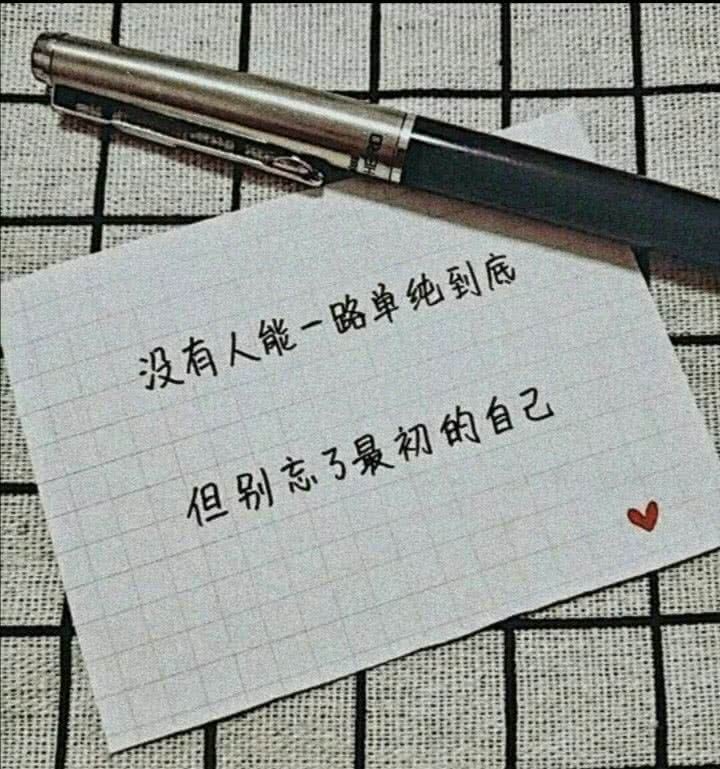 HERO
没有人能一路单纯到底
但别忘了最初的自己